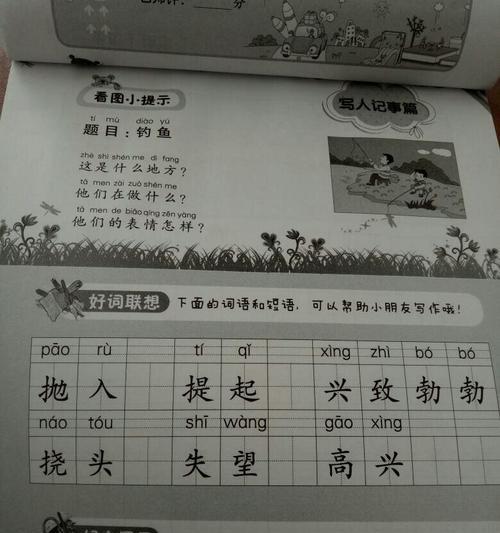 分
看图小提示
写人记事篇
tí mù diào yú
题目：钓鱼
zhè shì shén me dì fang
这是什么地方？
tā men zài zuò shén me
他们在做什么？
tā men de biǎo qíng zěn yàng
他们的表情怎样？
好词联想 下面的词语和短语，可以帮助小朋友写作哦！
pāo rù tí qǐ xìng zhì bó bó
抛入 提起 兴致勃勃
náo tóu shī wàng gāo xìng
挠头 失望 高兴